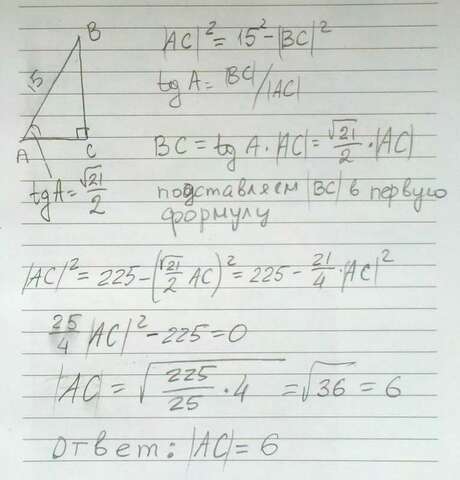 B
15
A
C
tg A = √21/2
|AC|² = 15² - |BC|²
tg A = |BC|/|AC|
BC = tg A · |AC| = √21/2 · |AC|
подставляем |BC| в первую
формулу
|AC|² = 225 - (√21/2 AC)² = 225 - 21/4 · |AC|²
25/4 |AC|² - 225 = 0
|AC| = √(225/25 · 4) = √36 = 6
Ответ: |AC| = 6